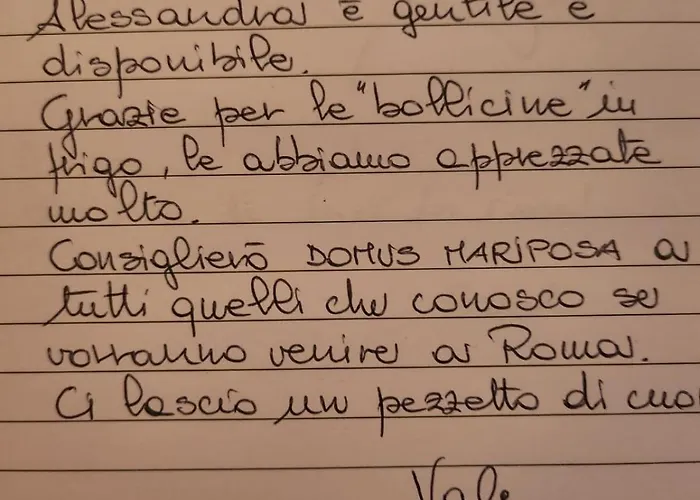 Alessandra è gentile e
disponibile.
Grazie per le "bollicine" in
frigo, le abbiamo apprezzate
molto.
Consiglierò DOMUS MARIPOSA a
tutti quelli che conosco se
vorranno venire a Roma.
Ci lascio un pezzetto di cuo